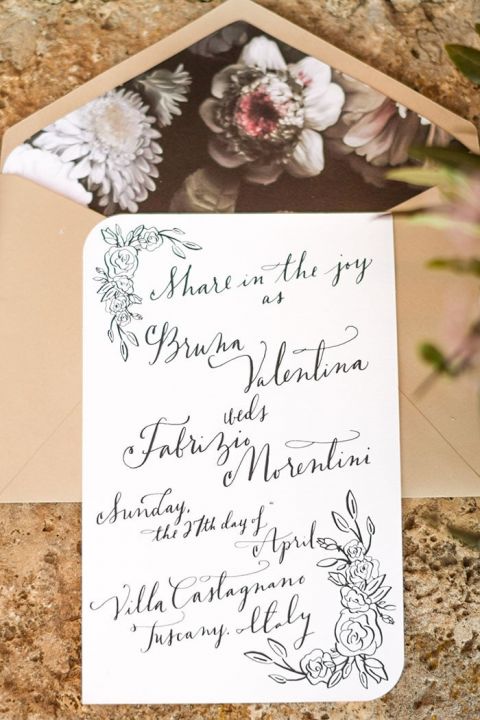 Share in the joy
as
Bruna
Valentina
weds
Fabrizio
Morentini
Sunday,
the 27th day of
April
Villa Castagnano
Tuscany, Italy